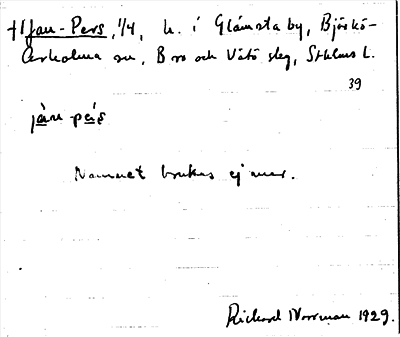 †1 Jan-Pers, 1/4, h. i Glámsta by, Björkö-
Arholma sn, Bro och Vätö skg, Sthlms L.
39
jàn-pás
Namnet brukas ej mer.
Richard Norrman 1929.